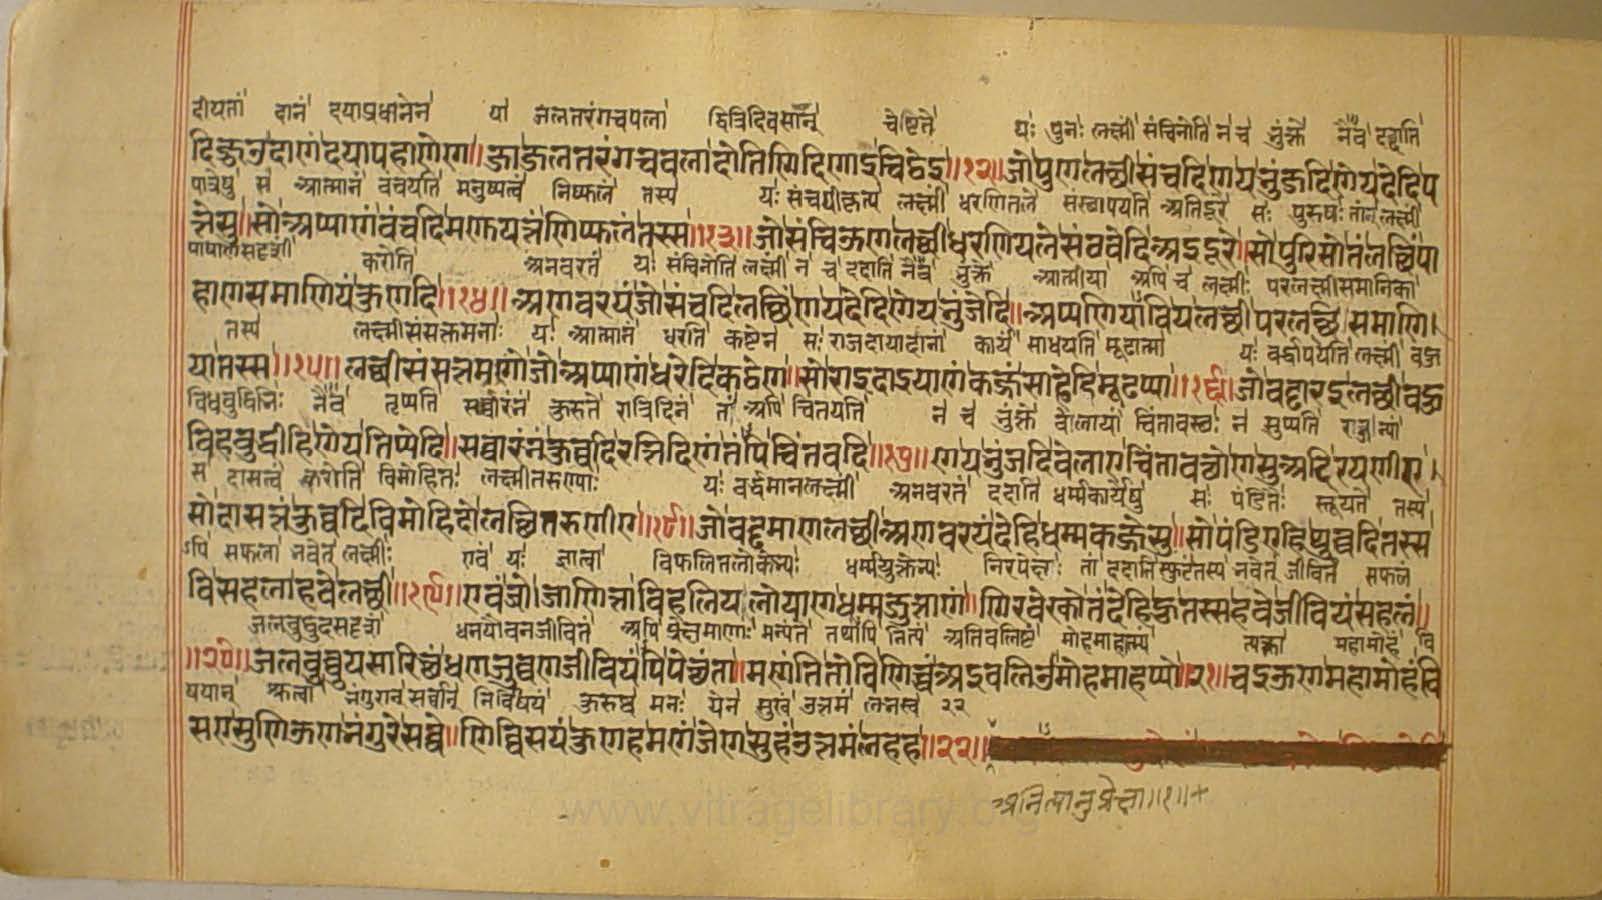 दीयतां दानं दयाप्रधानेन या जलतरंगचपला द्वित्रिदिवसान् चेष्टिते यः पुनः लक्ष्मीं संचिनोति न च भुंक्ते नैव ददाति
दिज्जउ दाणं दयापहाणेण॥ जा जलतरंगचवला दो तिण्णि दिणाइ चिट्ठेइ॥१२॥ जो पुण लच्छीं संचदि ण य भुंजदि णेय देदि प
पात्रेषु स आत्मानं वंचयति मनुष्यत्वं निष्फलं तस्य यः संचयीकृत्य लक्ष्मीं धरणितले संस्थापयति अतिदूरे सः पुरुषः तां लक्ष्मीं
त्तेसु॥ सो अप्पाणं वंचदि मणुयत्तं णिप्फलं तस्स॥१३॥ जो संचिऊण लच्छीं धरणियले संठवेदि अइदूरे॥ सो पुरिसो तं लच्छिं पा
पाषाणसदृशीं करोति अनवरतं यः संचिनोति लक्ष्मीं न च ददाति नैव भुंक्ते आत्मीया अपि च लक्ष्मीः परलक्ष्मीसमानिका
हाणसमाणियं कुणदि॥१४॥ अणवरयं जो संचदि लच्छिं ण य देदि णेय भुंजेदि॥ अप्पणिया वि य लच्छी परलच्छिसमाणि।
तस्य लक्ष्मीसंसक्तमनाः यः आत्मानं धरति कष्टेन सः राजदायादीनां कार्यं साधयति मूढात्मा यः वर्द्धापयति लक्ष्मीं बहु
या तस्स॥१५॥ लच्छीसंसत्तमणो जो अप्पाणं धरेदि कट्ठेण॥ सो राइदाइयाणं कज्जं साहेदि मूढप्पा॥१६॥ जो वट्टारइ लच्छीं बहु
विधबुद्धिभिः नैव तृप्यति सर्वारंभं कुरुते रात्रिदिनं तां अपि चिंतयति न च भुंक्ते वेलायां चिंतावस्थः न सुप्यति रजन्यां
विहबुद्धीहिं णेय तिप्पेदि॥ सव्वारंभं कुव्वदि रत्तिदिणं तं पि चिंतवदि॥१७॥ ण य भुंजदि वेलाए चिंतावत्थो ण सुअदि रयणीए।
स दासत्वं करोति विमोहितः लक्ष्मीतरुण्याः यः वर्द्धमानलक्ष्मीं अनवरतं ददाति धर्म्मकार्येषु सः पंडितैः स्तूयते तस्य
सो दासत्तं कुव्वदि विमोहिदो लच्छितरुणीए॥१८॥ जो वट्टमाण लच्छीं अणवरयं देहि धम्मकज्जेसु॥ सो पंडिएहि थुव्वदि तस्स
ऽपि सफला भवेत् लक्ष्मीः एवं यः ज्ञात्वा विफलितलोकेभ्यः धर्म्मयुक्तेभ्यः निरपेक्षः तां ददाति स्फुटं तस्य भवेत् जीवितं सफलं
वि सहला हवे लच्छी॥१९॥ एवं जो जाणित्ता विहलियलोयाण धम्मजुत्ताणं॥ णिरवेरको तं देहि हु तस्स हवे जीवियं सहलं॥
जलबुद्बुदसदृशं धनयौवनजीवितं अपि प्रेक्षमाणाः मन्यंते तथापि नित्यं अतिबलिष्टं मोहमाहात्म्यं त्यक्त्वा महामोहं वि
॥२०॥ जलबुब्बुयसारिच्छं धणजुव्वणजीवियं पि पेच्छंता॥ मण्णंति तो वि णिच्चं अइबलिउ मोहमाहप्पो॥२१॥ चइऊण महामोहं वि
षयान् श्रुत्वा भंगुरान् सर्वान् निर्विषयं कुरुष्व मनः येन सुखं उत्तमं लभस्व २२
सए सुणिऊण भंगुरे सव्वे॥ णिव्विसयं कुणह मणं जेण सुहं उत्तमं लहह॥२२॥
अनित्यानुप्रेक्षा॥१॥+
www.vitragelibrary.org